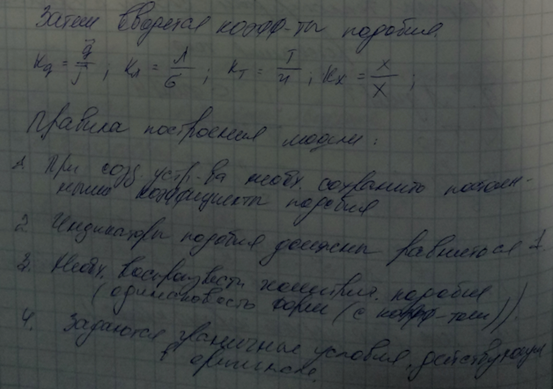 Затем вводятся коэфф-ты подобия.
Kq = q̃/j ; Kλ = λ/б ; Kт = T/u ; Kx = X/x ;
Правила построения модели:
1. При созд устр-ва необх сохранить постоян-
ными коэффициенты подобия
2. Индикаторы подобия должны равняться 1
3. Необх. воспроизвести подобия
(одинаковость форм (с коэфф-том))
4. Задаются граничные условия, действующие
в оригинале.